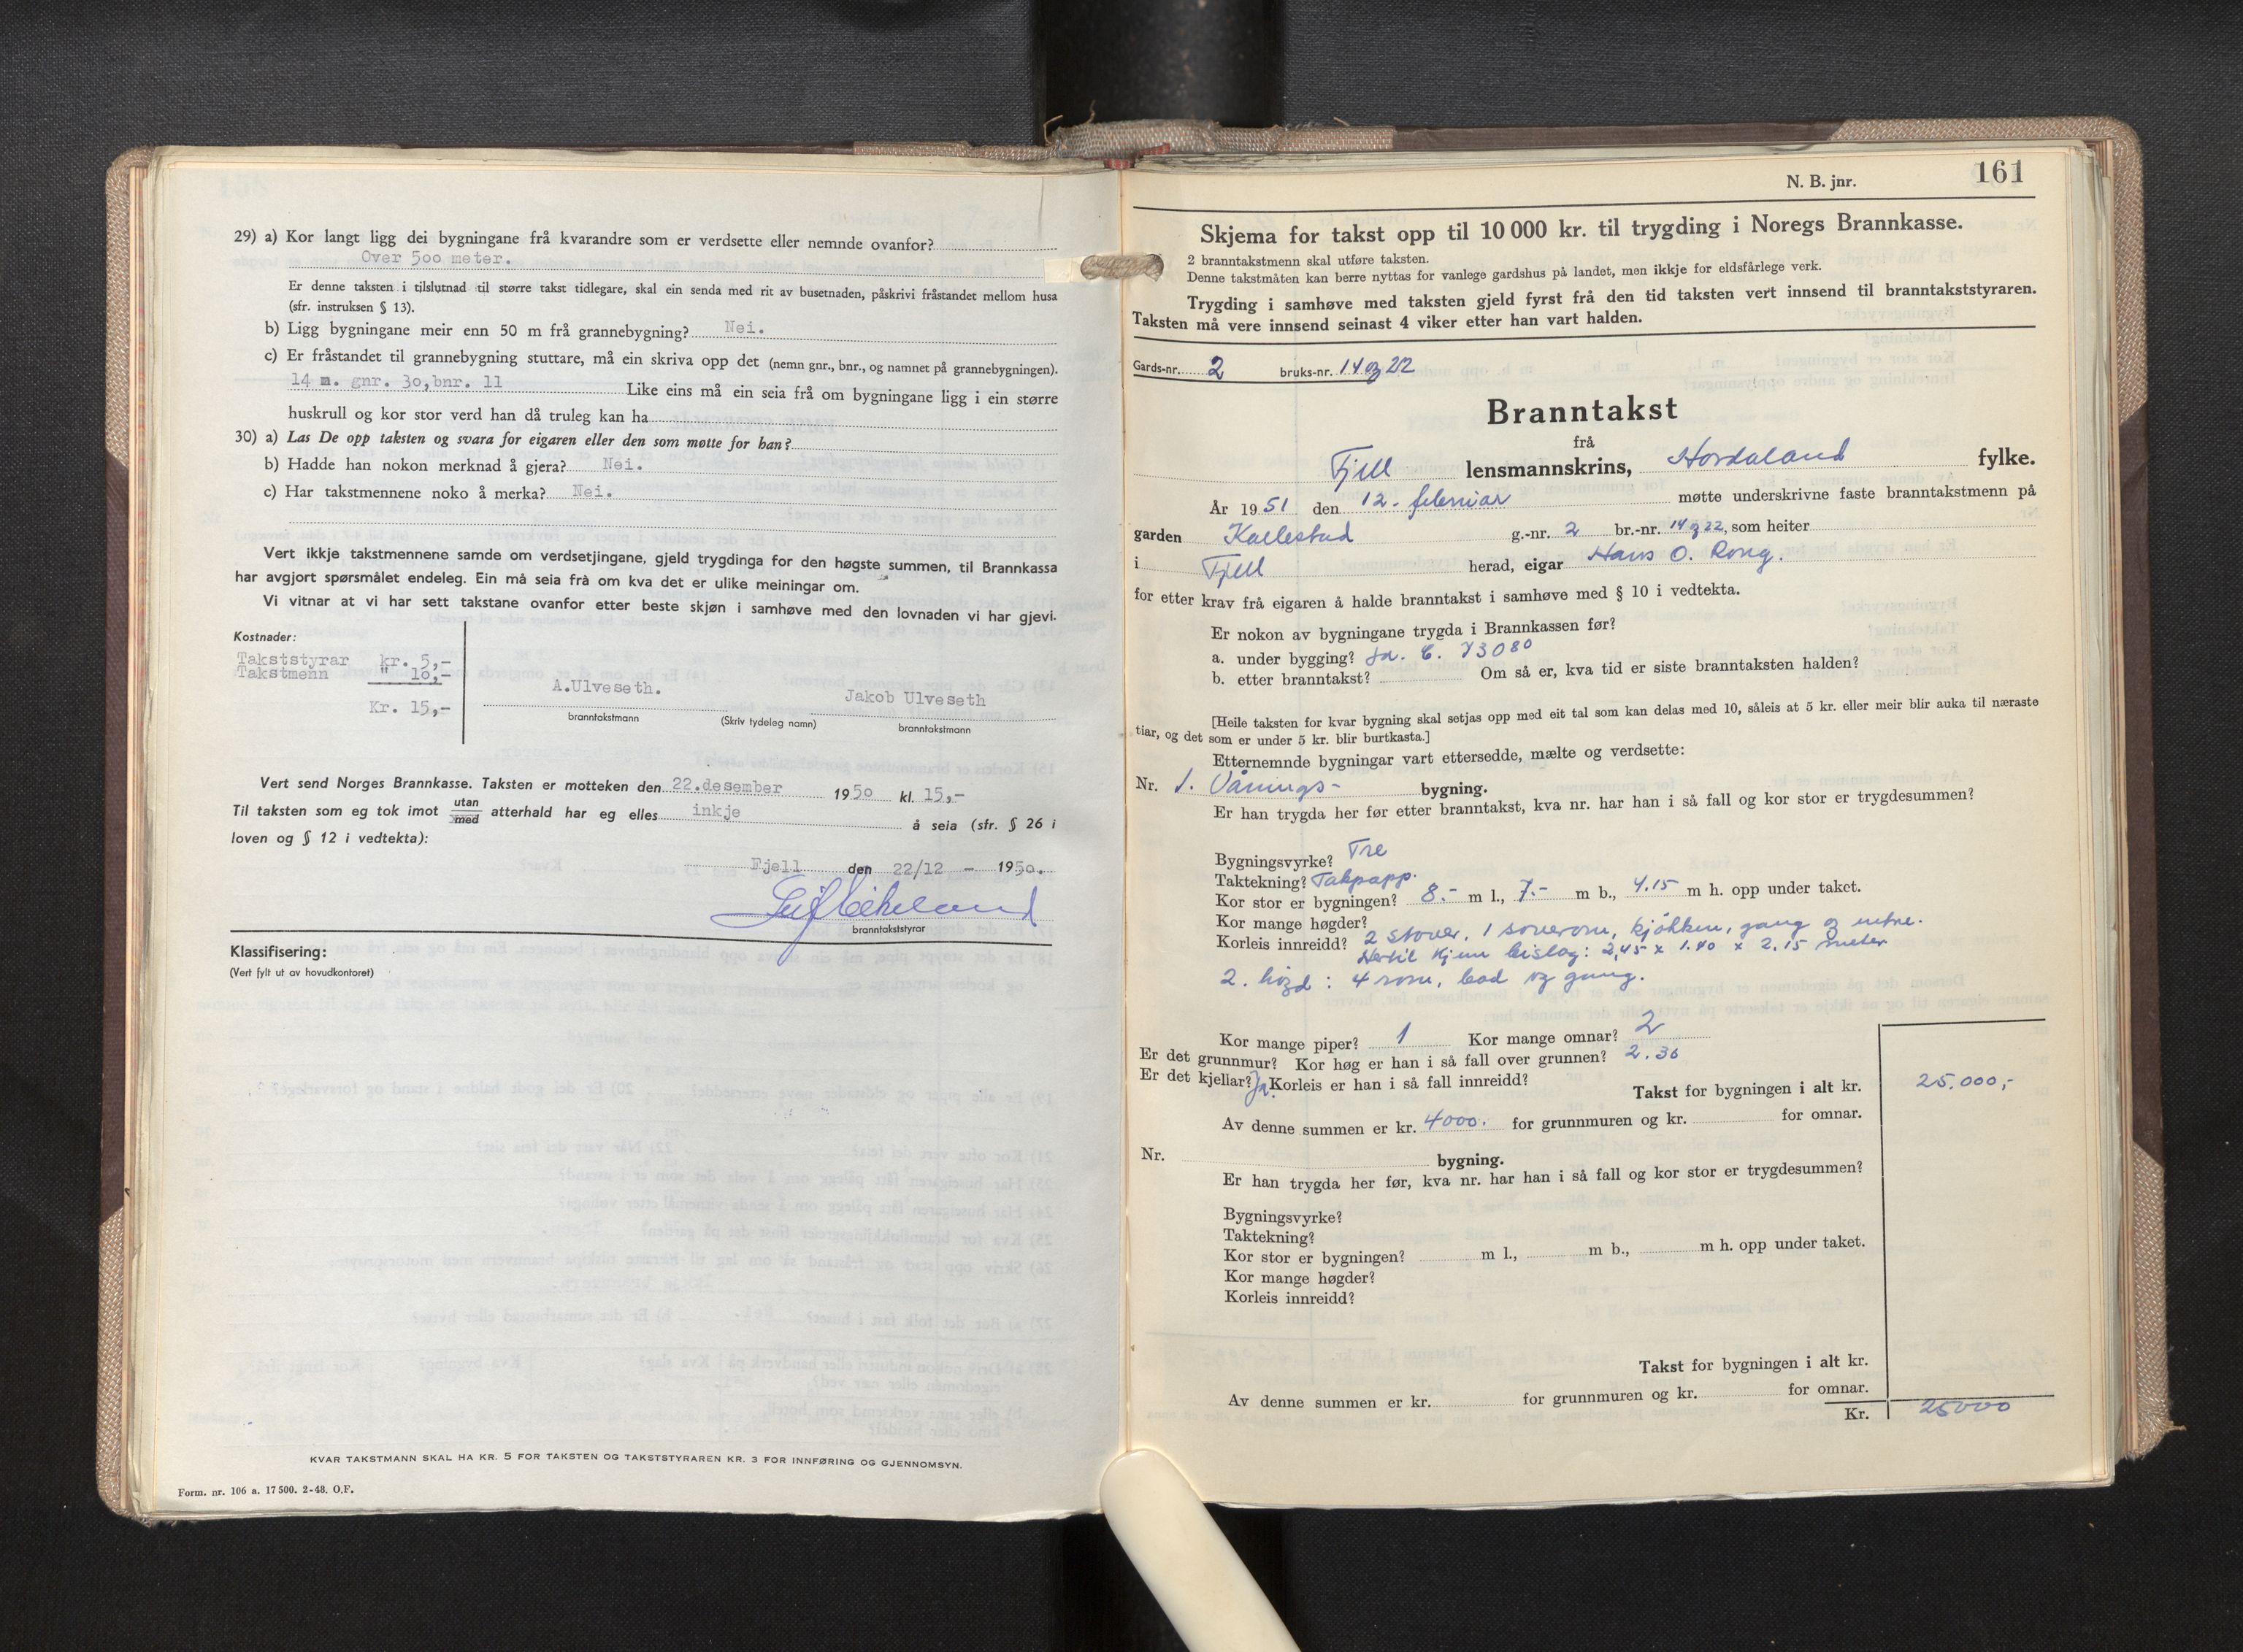 29) a) Kor langt ligg dei bygningane frå kvarandre som er verdsette eller nemnde ovanfor?
Over 500 meter.
Er denne taksten i tilslutnad til større takst tidlegare, skal ein senda med rit av busetnaden, påskrivi fråstandet mellom husa
(sfr. instruksen § 13).
b) Ligg bygningane meir enn 50 m frå grannebygning? Nei.
c) Er fråstandet til grannebygning stuttare, må ein skriva opp det (nemn gnr., bnr., og namnet på grannebygningen).
14 m. gnr. 30, bnr. 11 Like eins må ein seia frå om bygningane ligg i ein større
huskrull og kor stor verd han då truleg kan ha
30) a) Las De opp taksten og svara for eigaren eller den som møtte for han?
b) Hadde han nokon merknad å gjera? Nei.
c) Har takstmennene noko å merka? Nei.
Vert ikkje takstmennene samde om verdsetjingane, gjeld trygdinga for den høgste summen, til Brannkassa
har avgjort spørsmålet endeleg. Ein må seia frå om kva det er ulike meiningar om.
Vi vitnar at vi har sett takstane ovanfor etter beste skjøn i samhøve med den lovnaden vi har gjevi.
Kostnader:
Takststyrar kr. 5,-
Takstmenn " 10,-
Kr. 15,-
A.Ulveseth. Jakob Ulveseth
branntakstmann (Skriv tydeleg namn) branntakstmann
Vert send Norges Brannkasse. Taksten er motteken den 22.desember 1950 kl. 15,-
Til taksten som eg tok imot utan/med atterhald har eg elles inkje å seia (sfr. § 26 i
loven og § 12 i vedtekta):
Fjell den 22/12 - 1950.
branntakststyrar
Klassifisering:
(Vert fylt ut av hovudkontoret)
KVAR TAKSTMANN SKAL HA KR. 5 FOR TAKSTEN OG TAKSTSTYRAREN KR. 3 FOR INNFØRING OG GJENNOMSYN.
Form. nr. 106 a. 17500. 2-48. O.F.
N. B. jnr. 161
Skjema for takst opp til 10 000 kr. til trygding i Noregs Brannkasse.
2 branntakstmenn skal utføre taksten.
Denne takstmåten kan berre nyttas for vanlege gardshus på landet, men ikkje for eldsfårlege verk.
Trygding i samhøve med taksten gjeld fyrst frå den tid taksten vert innsend til branntakststyraren.
Taksten må vere innsend seinast 4 viker etter han vart halden.
Gards-nr. 2 bruks-nr. 14 og 22
Branntakst
frå
Fjell lensmannskrins, Hordaland fylke.
År 1951 den 12. februar møtte underskrivne faste branntakstmenn på
garden Kallestad g.-nr. 2 br.-nr. 14 og 22, som heiter
i Fjell herad, eigar Hans O. Rong.
for etter krav frå eigaren å halde branntakst i samhøve med § 10 i vedtekta.
Er nokon av bygningane trygda i Brannkassen før?
a. under bygging? Ja. C. 73080
b. etter branntakst? Om så er, kva tid er siste branntaksten halden?
[Heile taksten for kvar bygning skal setjas opp med eit tal som kan delas med 10, såleis at 5 kr. eller meir blir auka til næraste
tiar, og det som er under 5 kr. blir burtkasta.]
Etternemnde bygningar vart ettersedde, mælte og verdsette:
Nr. 1. Vånings- bygning.
Er han trygda her før etter branntakst, kva nr. har han i så fall og kor stor er trygdesummen?
Bygningsvyrke? Tre
Taktekning? Takpapp.
Kor stor er bygningen? 8.- m l., 7.- m b., 4.15 m h. opp under taket.
Kor mange høgder?
Korleis innreidd? 2 stover, 1 soverom, kjøkken, gang og entre.
Hertil kjem bislag: 2,45 x 1.40 x 2.15 meter
2. høgd: 4 rom, bad og gang.
Kor mange piper? 1 Kor mange omnar? 2
Er det grunnmur? Kor høg er han i så fall over grunnen? 2.30
Er det kjellar? Ja. Korleis er han i så fall innreidd?
Takst for bygningen i alt kr. 25.000,-
Av denne summen er kr. 4000. for grunnmuren og kr. for omnar.
Nr. bygning.
Er han trygda her før, kva nr. har han i så fall og kor stor er trygdesummen?
Bygningsvyrke?
Taktekning?
Kor stor er bygningen? m l., m b., m h. opp under taket.
Kor mange høgder?
Korleis innreidd?
Takst for bygningen i alt kr.
Av denne summen er kr. for grunnmuren og kr. for omnar.
Kr. 25000